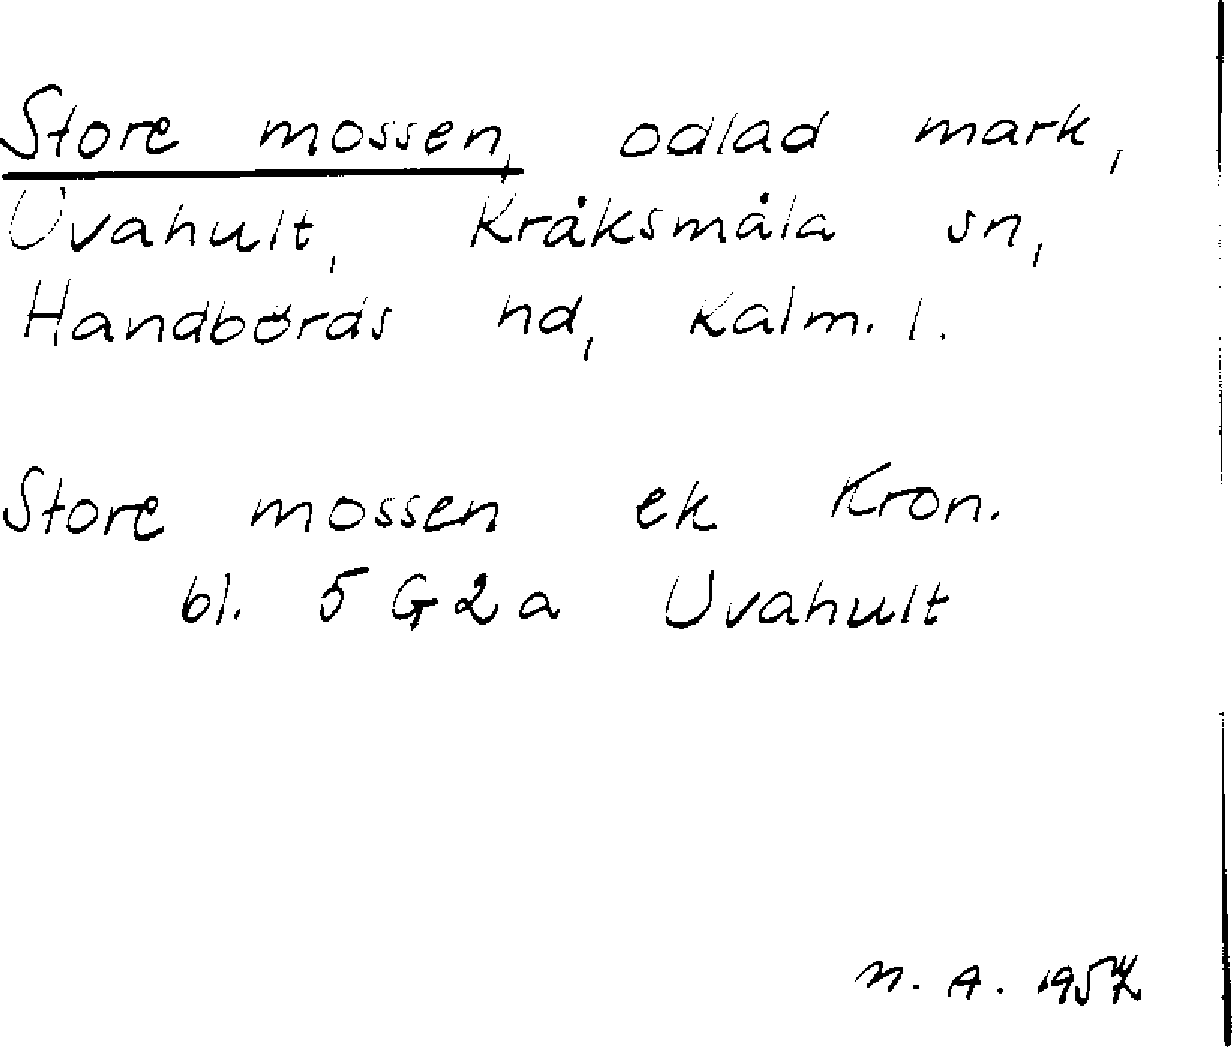 Store mossen, odlad mark,
Uvahult, Kråksmåla sn,
Handbörds hd, Kalm. l.
Store mossen ek Kron.
bl. 5 G 2 a Uvahult
N. A. 1957